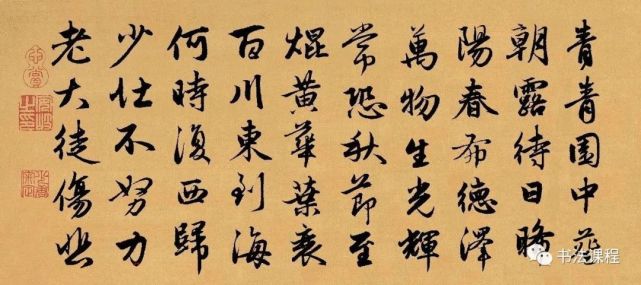 青青園中葵
朝露待日晞
陽春布德澤
萬物生光輝
常恐秋節至
焜黃華葉衰
百川東到海
何時復西歸
少壮不努力
老大徒傷悲
书法课程